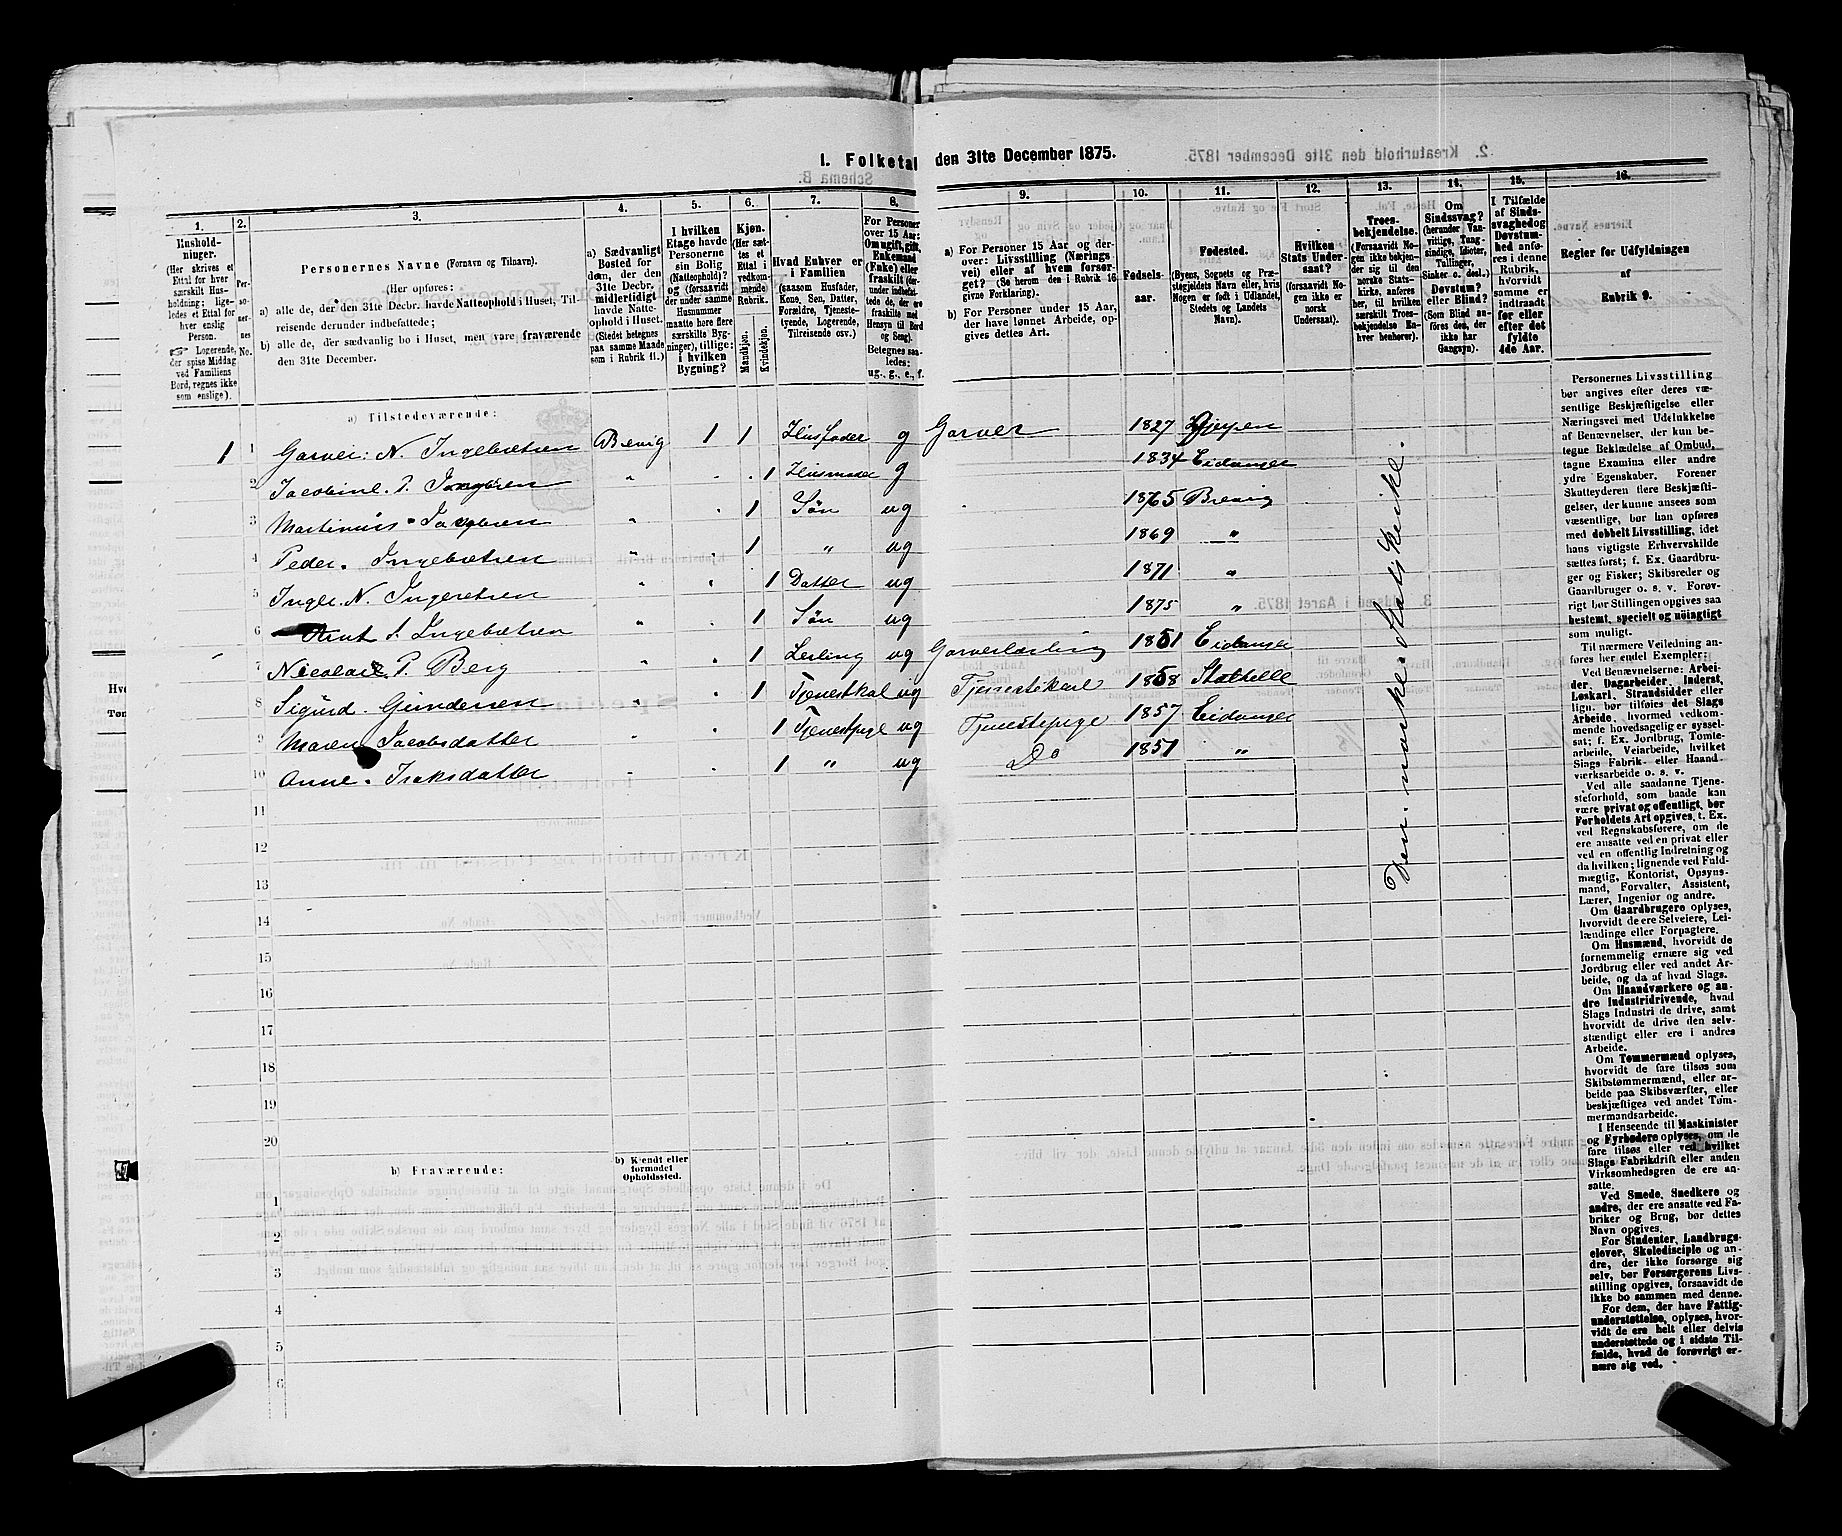 1. Folketal den 31te December 1875.
1.
Hushold-
ninger.
(Her skrives et
Ettal for hver
særskilt Hus-
holdning; lige-
ledes et Ettal for
hver enslig
Person.
☞ Logerende,
der spise Middag
ved Familiens
Bord, regnes ikke
som enslige).
2.
Per-
so-
ner-
nes
No.
3.
Personernes Navne (Fornavn og Tilnavn).
(Her opføres:
a) alle de, der den 31te Decbr. havde Natteophold i Huset, Til-
reisende derunder indbefattede;
b) alle de, der sædvanlig bo i Huset, men vare fraværende
den 31te December.
4.
a) Sædvanligt
Bosted for
dem, der den
31te Decbr.
midlertidigt
havde Natte-
ophold i Huset.
(Stedet betegnes
paa samme Maade
som i Rubrik 11.)
5.
I hvilken
Etage havde
Personerne
sin Bolig
(Natteophold)?
og (forsaavidt
der under samme
Husnummer
maatte høre flere
særskilte Byg-
ninger), tillige:
i hvilken
Bygning?
6.
Kjøn.
(Her sæt-
tes et
Ettal i
vedkom-
mende
Rubrik.
Mandkjøn.
Kvindekjøn.
7.
Hvad Enhver er
i Familien
(saasom Husfader,
Kone, Søn, Datter,
Forældre, Tjeneste-
tyende, Logerende,
Tilreisende osv.)
8.
For Personer
over 15 Aar:
Om ugift, gift,
Enkemand
(Enke) eller
fraskilt (der-
under indbefat-
tede de, der ere
fraskilte med
Hensyn til Bord
og Seng).
Betegnes saa-
ledes:
ug., g., e., f.
9.
a) For Personer 15 Aar og der-
over: Livsstilling (Nærings-
vei) eller af hvem forsør-
get? (Se herom den i Rubrik 16
givne Forklaring).
b) For Personer under 15 Aar,
der have lønnet Arbeide, op-
gives dettes Art.
10.
Fødsels-
aar.
11.
Fødested.
(Byens, Sognets og Præ-
stegjeldets Navn eller, hvis
Nogen er født i Udlandet,
Stedets og Landets
Navn).
12.
Hvilken
Stats Under-
saat?
(forsaavidt
Nogen ikke er
norsk
Undersaat).
13.
Troes-
bekjendelse.
(Forsaavidt No-
gen ikke bekjen-
der sig til den
norske Stats-
kirke, anføres
her, til hvilken
særskilt Troes-
bekjendelse En-
hver henhører).
14.
Om
Sindssvag?
(herunder Van-
vittige, Tung-
sindige, Idioter,
Tullinger,
Sinker o. desl.)
Døvstum?
eller Blind?
(Som Blind an-
føres den, der
ikke har
Gangsyn).
15.
I Tilfælde
af Sinds-
svaghed og
Døvstum-
hed anfø-
res i denne
Rubrik,
hvorvidt
samme er
indtraadt
før eller
efter det
fyldte
4de Aar.
16.
Regler for Udfyldningen
af
Rubrik 9.
a) Tilstedeværende:
1 1 Garver: N. Ingebretsen Brevig 1 1 Husfader g Garver 1827 Gjerpen
2 Jacobine. P. Jacobsen " . 1 Husmoder g 1834 Eidanger
3 Martinius Jacobsen " . 1 Søn ug 1865 Brevig
4 Peder. Ingebretsen " . 1 " ug 1869 "
5 Inger. N. Ingebretsen " . 1 Datter ug 1871 "
6 Knut S. Ingebretsen " . 1 Søn ug 1875 "
7 Nicolai P. Berg " . 1 Lerling ug Garverlærling 1851 Eidanger
8 Sigurd Gundersen " . 1 Tjenestkal ug Tjenestekarl 1858 Stathelle
9 Maren Jacobsdatter " . 1 Tjenestpige ug Tjenestepige 1857 Eidanger
10 Anne. Isaksdatter " . 1 " ug Do 1851 "
Den norske Statskirke.
11
12
13
14
15
16
17
18
19
20
b) Fraværende:
b) Kjendt eller
formodet
Opholdssted.
1
2
3
4
5
6
Personernes Livsstilling
bør angives efter deres væ-
sentlige Beskjæftigelse eller
Næringsvei med Udelukkelse
af Benævnelser, der kun be-
tegne Beklædelse af Ombud,
tagne Examina eller andre
ydre Egenskaber. Forener
Skatteyderen flere Beskjæfti-
gelser, der kunne ansees som
væsentlige, bør han opføres
med dobbelt Livsstilling, idet
hans vigtigste Erhvervskilde
sættes først; f. Ex. Gaardbru-
ger og Fisker; Skibsreder og
Gaardbruger o. s. v. Forøv-
rigt bør Stillingen opgives saa
bestemt, specielt og nøiagtigt
som muligt.
Til nærmere Veiledning an-
føres her endel Exempler:
Ved Benævnelserne: Arbei-
der, Dagarbeider, Inderst,
Løskarl, Strandsidder eller
lign. bør tilføies det Slags
Arbeide, hvormed vedkom-
mende hovedsagelig er syssel-
sat; f. Ex. Jordbrug, Tømte-
arbeide, Veiarbeide, hvilket
Slags Fabrik- eller Haand-
værksarbeide o. s. v.
Ved alle saadanne Tjene-
steforhold, som baade kan
være privat og offentligt, bør
Forholdets Art opgives, t. Ex.
ved Regnskabsførere, om de
ere ansatte ved en privat eller
ved en offentlig Indretning og
da hvilken; lignende ved Fuld-
mægtig, Kontorist, Opsyns-
mand, Forvalter, Assistent,
Lærer, Ingeniør og andre.
Om Gaardbrugere oplyses,
hvorvidt de ere Selveiere, Lei-
lændinge eller Forpagtere.
Om Husmænd, hvorvidt de
fornemmelig ernære sig ved
Jordbrug eller ved andet Ar-
beide, og da af hvad Slags.
Om Haandværkere og an-
dre Industridrivende, hvad
Slags Industri de drive, samt
hvorvidt de drive den selv-
stændigt eller ere i andres
Arbeide.
Om Tømmermænd oplyses,
hvorvidt de fare tilsøs som
Skibstømmermænd, eller ar-
beide paa Skibsværfter, eller
beskjæftiges ved andet Tøm-
mermandsarbeide.
I Henseende til Maskinister
og Fyrbødere oplyses, om de
fare tilsøs eller ved hvilket
Slags Fabrikdrift eller anden
Virksomhedsgren de ere an-
satte.
Ved Smede, Snedkere og
andre, der ere ansatte ved Fa-
briker og Brug, bør dettes
Navn opgives.
For Studenter, Landbrugs-
elever, Skoledisciple og an-
dre, der ikke forsørge sig
selv, bør Forsørgerens Livs-
stilling opgives, forsaavidt de
ikke bo sammen med denne.
For dem, der have Fattig-
understøttelse, oplyses, hvor-
vidt de ere helt eller delvis
understøttede og i sidste Til-
fælde, hvad de forøvrigt er-
nære sig ved.